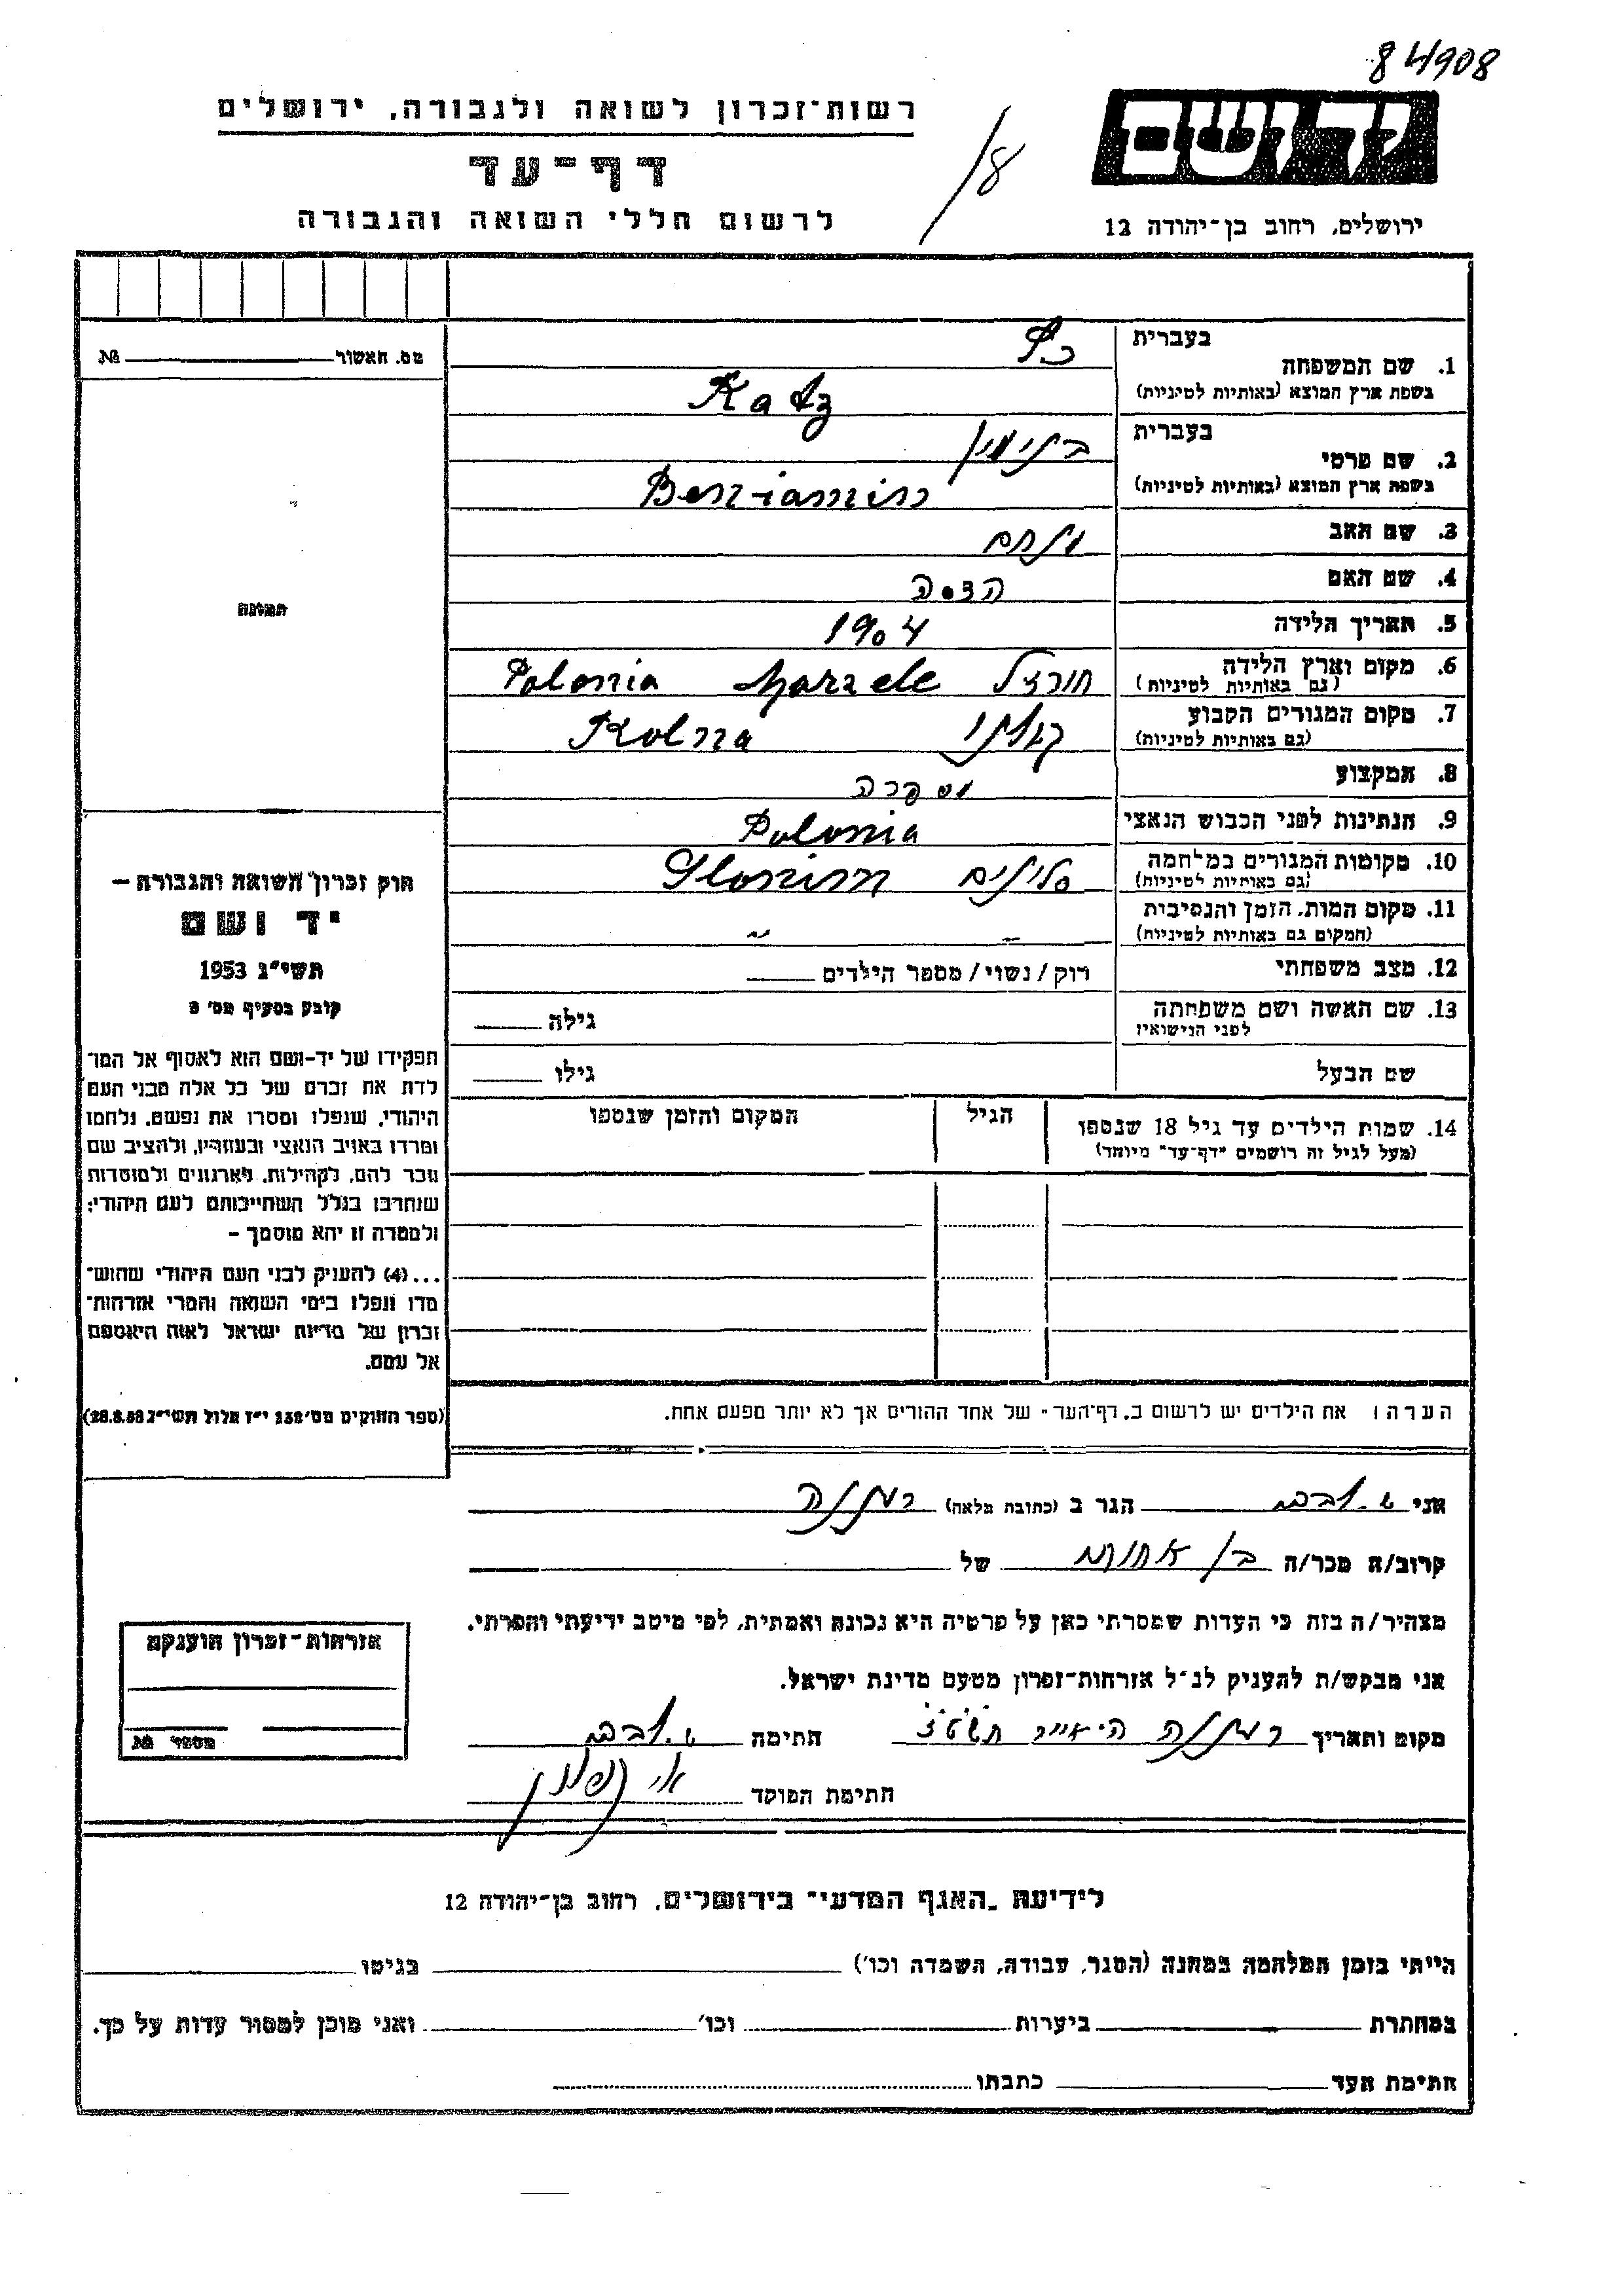 84908
רשות־זכרון לשואה ולגבורה, ירושלים
יד ושם
דף־עד
8/
לרשום חללי השואה והגבורה
ירושלים, רחוב בן־יהודה 12
מס. האשור № 
בעברית כץ
1. שם המשפחה
בשפת ארץ המוצא (באותיות לטיניות) Katz
בעברית בנימין
2. שם פרטי
בשפת ארץ המוצא (באותיות לטיניות) Beniamin
3. שם האב מנחם
4. שם האם הדסה
5. תאריך הלידה 1904
6. מקום וארץ הלידה חורזל Chorzele Polonia
(גם באותיות לטיניות)
7. מקום המגורים הקבוע Kolna
(גם באותיות לטיניות)
8. המקצוע
9. הנתינות לפני הכבוש הנאצי Polonia
10. מקומות המגורים במלחמה סלונים Slonim
(גם באותיות לטיניות)
11. מקום המות, הזמן והנסיבות
(המקום גם באותיות לטיניות)
12. מצב משפחתי רוק / נשוי / מספר הילדים
13. שם האשה ושם משפחתה גילה
לפני הנישואין
שם הבעל גילו
14. שמות הילדים עד גיל 18 שנספו הגיל המקום והזמן שנספו
(מעל לגיל זה רושמים "דף־עד" מיוחד)
הערה: את הילדים יש לרשום ב"דף־העד" של אחד ההורים אך לא יותר מפעם אחת.
תמונה
חוק זכרון השואה והגבורה —
יד ושם
תשי"ג 1953
קובע בסעיף מס' 2
תפקידו של יד-ושם הוא לאסוף אל המו־
לדת את זכרם של כל אלה מבני העם
היהודי, שנפלו ומסרו את נפשם, נלחמו
ומרדו באויב הנאצי ובעוזריו, ולהציב שם
וזכר להם, לקהילות, לארגונים ולמוסדות
שנחרבו בגלל השתייכותם לעם היהודי;
ולמטרה זו יהא מוסמך —
...(4) להעניק לבני העם היהודי שהוש־
מדו ונפלו בימי השואה והמרי אזרחות־
זכרון של מדינת ישראל לאות היאספם
אל עמם.
(ספר החוקים מס' 132 י"ז אלול תשי"ג 28.8.53)
אני הגר ב (כתובת מלאה) רעננה
קרוב/ה מכר/ה בן אחות של
מצהיר/ה בזה כי העדות שמסרתי כאן על פרטיה היא נכונה ואמתית, לפי מיטב ידיעתי והכרתי.
אני מבקש/ת להעניק לנ"ל אזרחות־זכרון מטעם מדינת ישראל.
מקום ותאריך רעננה אייר חתימה
חתימת הפוקד
אזרחות־זכרון הוענקה
מספר №
לידיעת "האגף המדעי" בירושלים, רחוב בן־יהודה 12
הייתי בזמן המלחמה במחנה (הסגר, עבודה, השמדה וכו') בגיטו
במחתרת ביערות וכו' ואני מוכן למסור עדות על כך.
חתימת העד כתבתו